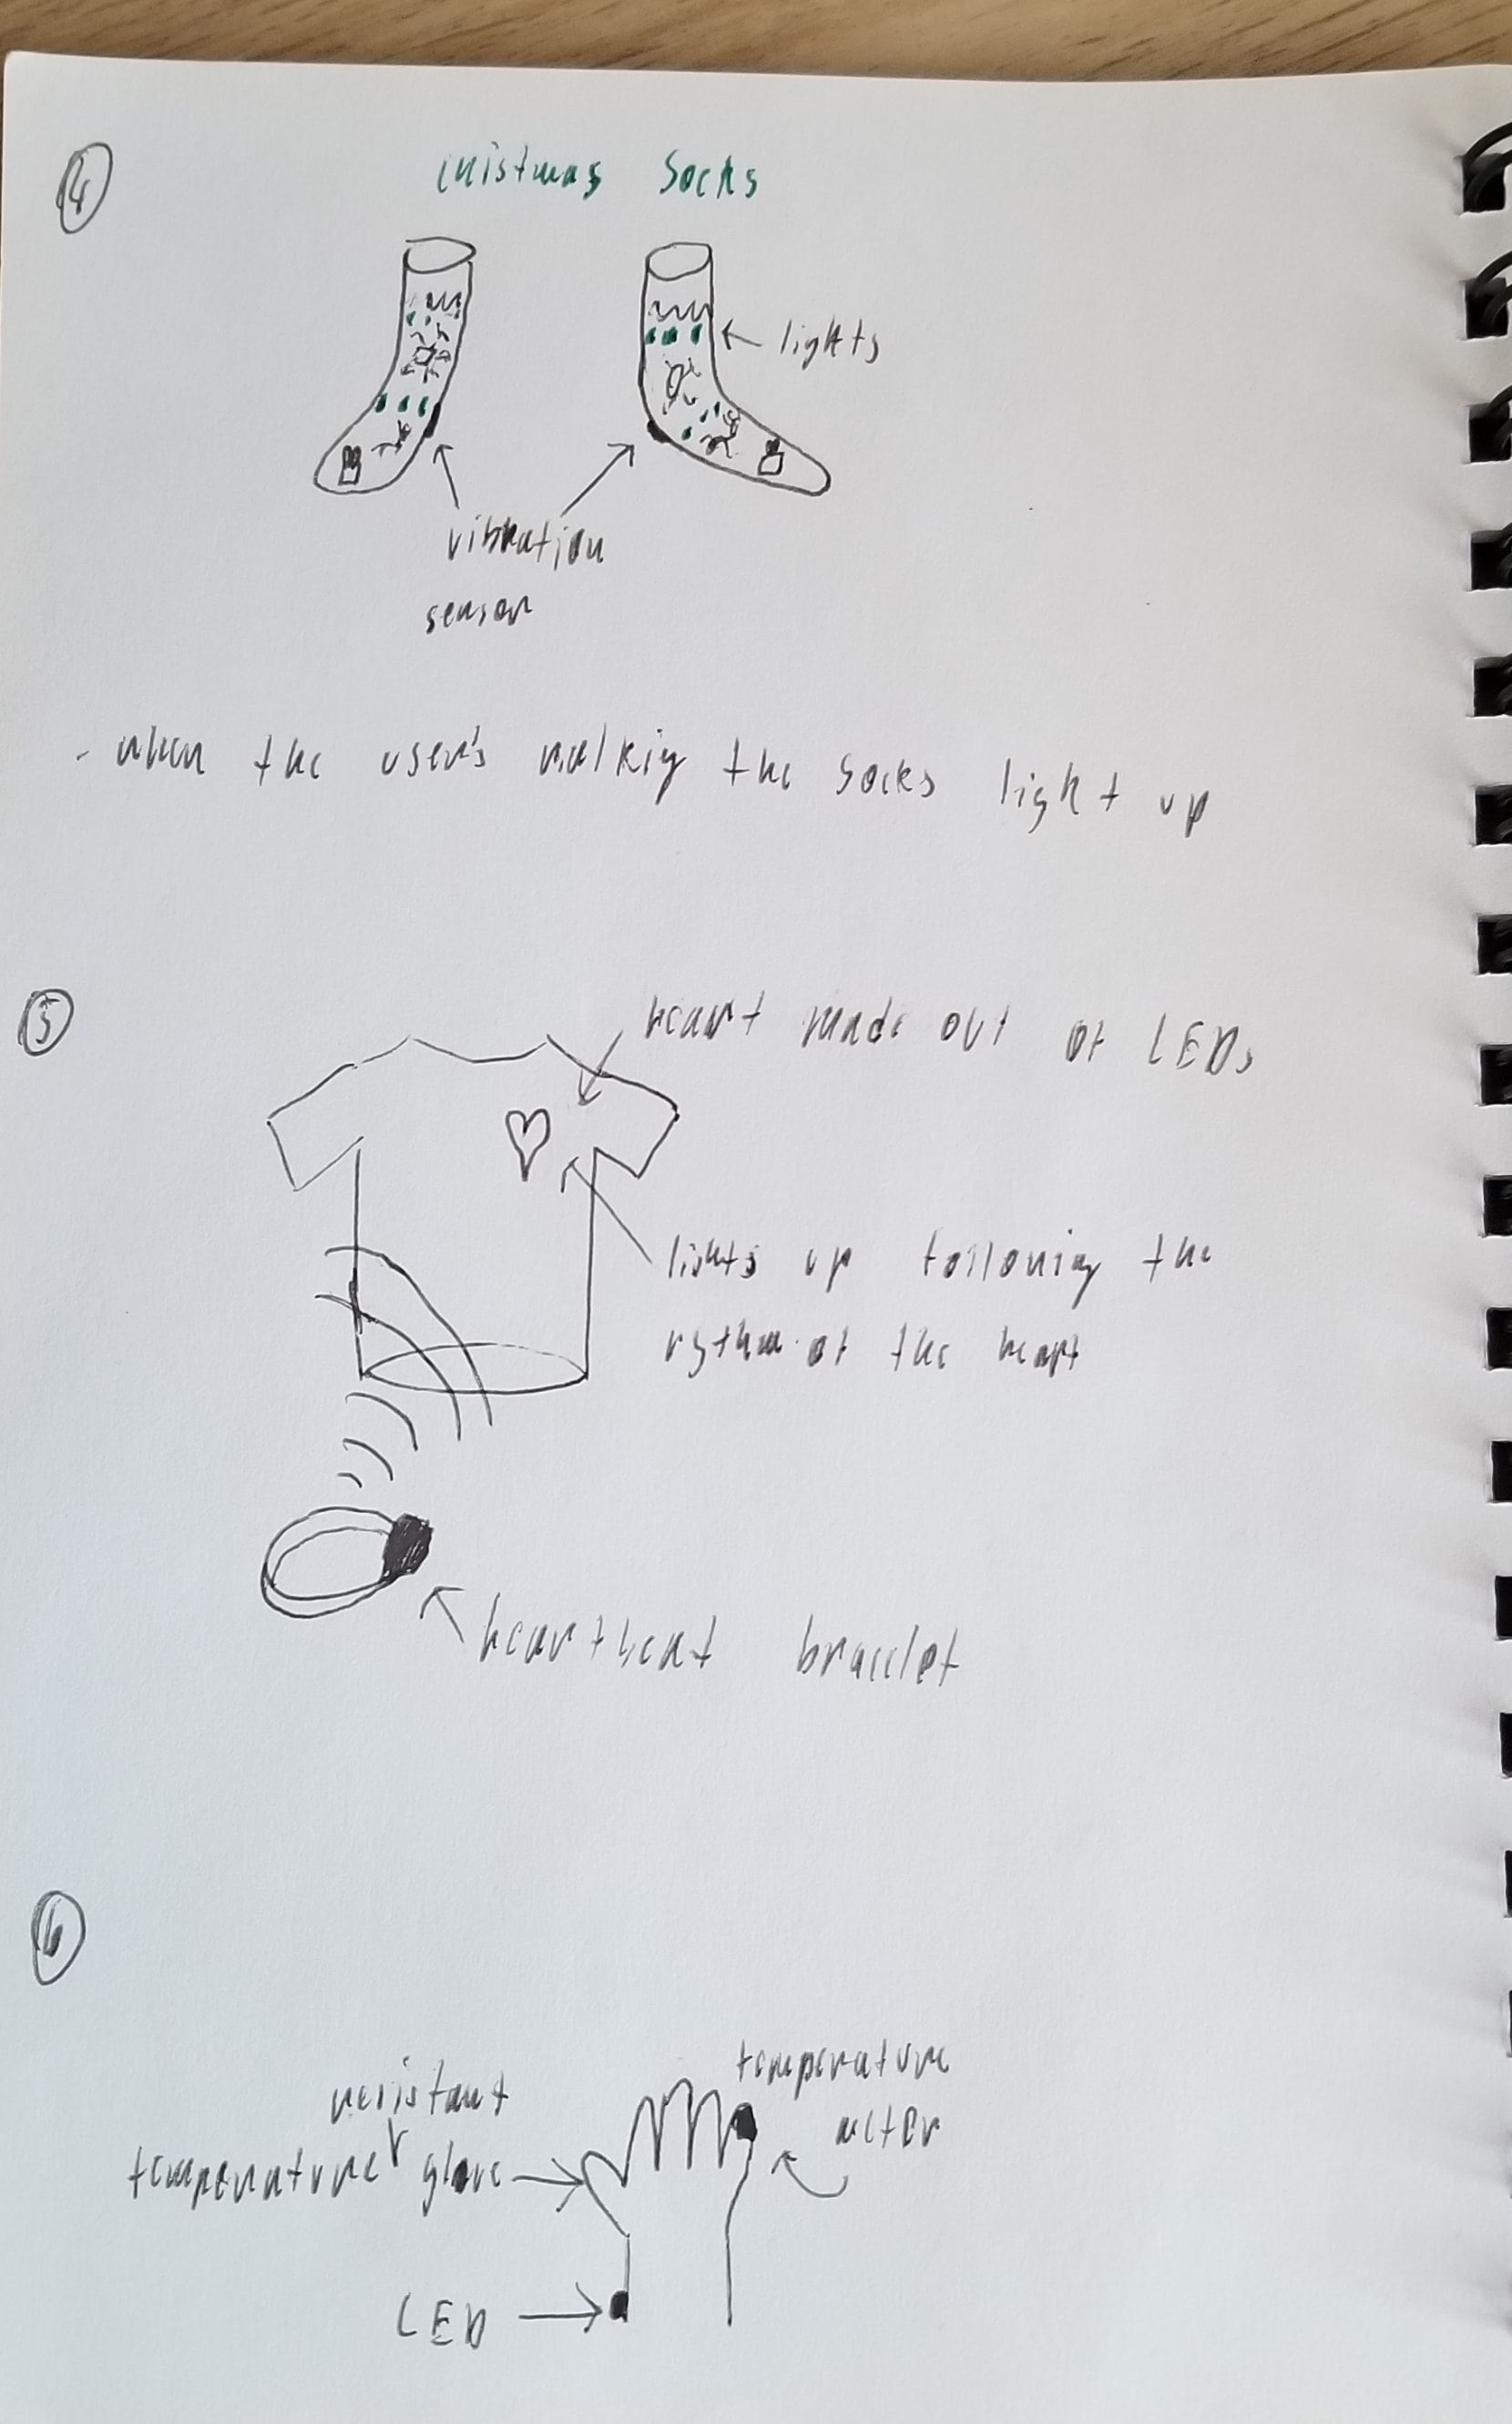 4
Cristmas Socks
lights
vibration
sensor
- when the user's walkig the socks light up
5
heart made out of LEDs
lights up following the
rythm of the heart
heartbeat bracelet
6
temperature
meter
resistant
temperature glove
LED